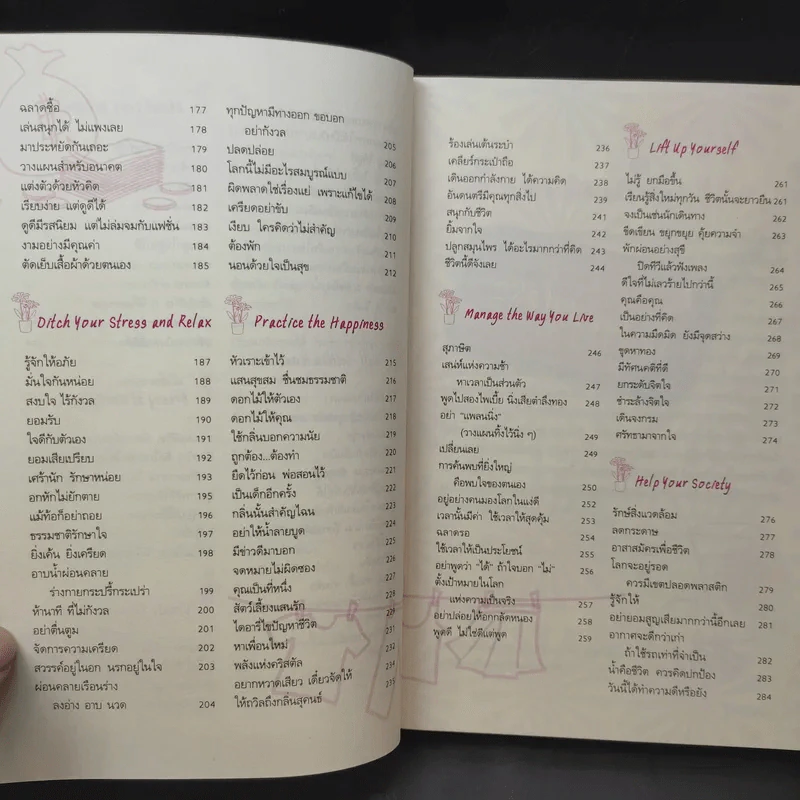 ฉลาดซื้อ 177
เล่นสนุกได้ ไม่แพงเลย 178
มาประหยัดกันเถอะ 179
วางแผนสำหรับอนาคต 180
แต่งตัวด้วยหัวคิด 181
เรียบง่าย แต่ดูดีได้ 182
ดูดีมีรสนิยม แต่ไม่ล่มจมกับแฟชั่น 183
งามอย่างมีคุณค่า 184
ตัดเย็บเสื้อผ้าด้วยตนเอง 185
Ditch Your Stress and Relax
รู้จักให้อภัย 187
มั่นใจกันหน่อย 188
สงบใจ ไร้กังวล 189
ยอมรับ 190
ใจดีกับตัวเอง 191
ยอมเสียเปรียบ 192
เศร้านัก รักษาหน่อย 193
อกหักไม่ยักตาย 195
แม้ท้อก็อย่าถอย 196
ธรรมชาติรักษาใจ 197
ยิ่งเค้น ยิ่งเครียด 198
อาบน้ำผ่อนคลาย
ร่างกายกระปรี้กระเปร่า 199
ห้านาที ที่ไม่กังวล 200
อย่าตื่นตูม 201
จัดการความเครียด 202
สวรรค์อยู่ในอก นรกอยู่ในใจ 203
ผ่อนคลายเรือนร่าง
ลงอ่าง อาบ นวด 204
ทุกปัญหามีทางออก ขอบอก
อย่ากังวล 205
ปลดปล่อย 206
โลกนี้ไม่มีอะไรสมบูรณ์แบบ 207
ผิดพลาดใช่เรื่องแย่ เพราะแก้ไขได้ 208
เครียดอย่าขับ 209
เงียบ ใครคิดว่าไม่สำคัญ 210
ต้องพัก 211
นอนด้วยใจเป็นสุข 212
Practice the Happiness
หัวเราะเข้าไว้ 215
แสนสุขสม ชื่นชมธรรมชาติ 216
ดอกไม้ให้ตัวเอง 217
ดอกไม้ให้คุณ 218
ใช้กลิ่นบอกความนัย 219
ถูกต้อง...ต้องทำ 220
ยืดไว้ก่อน พ่อสอนไว้ 221
เป็นเด็กอีกครั้ง 222
กลิ่นนั้นสำคัญไฉน 223
อย่าให้น้ำลายบูด 224
มีข่าวดีมาบอก 225
จดหมายไม่ผิดซอง 226
คุณเป็นที่หนึ่ง 227
สัตว์เลี้ยงแสนรัก 228
ไดอารี่ไขปัญหาชีวิต 231
หาเพื่อนใหม่ 232
พลังแห่งคริสตัล 234
อยากหวาดเสียว เดี๋ยวจัดให้ 235
ให้ถวิลถึงกลิ่นสุคนธ์
ร้องเล่นเต้นระบำ 236
เคลียร์กระเป๋าถือ 237
เดินออกกำลังกาย ได้ความคิด 238
อันดนตรีมีคุณทุกสิ่งไป 239
สนุกกับชีวิต 241
ยิ้มจากใจ 242
ปลูกสมุนไพร ได้อะไรมากกว่าที่คิด 243
ชีวิตนี้ดีจังเลย 244
Manage the Way You Live
สุภาษิต 246
เสน่ห์แห่งความช้า
หาเวลาเป็นส่วนตัว 247
พูดไปสองไพเบี้ย นิ่งเสียตำลึงทอง 248
อย่า "แพลนนิ่ง"
(วางแผนทิ้งไว้นิ่ง ๆ) 249
เปลี่ยนเลย 249
การค้นพบที่ยิ่งใหญ่
คือพบใจของตนเอง 250
อยู่อย่างคนมองโลกในแง่ดี 252
เวลานั้นมีค่า ใช้เวลาให้สุดคุ้ม 253
ฉลาดรอ 254
ใช้เวลาให้เป็นประโยชน์ 255
อย่าพูดว่า "ได้" ถ้าใจบอก "ไม่" 256
ตั้งเป้าหมายในโลก
แห่งความเป็นจริง 257
อย่าปล่อยให้อกกลัดหนอง 258
พูดดี ไม่ใช่ดีแต่พูด 259
Lift Up Yourself
ไม่รู้ ยกมือขึ้น 261
เรียนรู้สิ่งใหม่ทุกวัน ชีวิตนั้นจะยาวยืน 261
จงเป็นเช่นนักเดินทาง 262
ขีดเขียน ขยุกขยุย คุ้ยความจำ 263
พักผ่อนอย่างสุขี
ปิดทีวีแล้วฟังเพลง 264
ดีใจที่ไม่เลวร้ายไปกว่านี้ 265
คุณคือคุณ 266
เป็นอย่างที่คิด 267
ในความมืดมิด ยังมีจุดสว่าง 268
ขุดหาทอง 269
มีทัศนคติที่ดี 270
ยกระดับจิตใจ 271
ชำระล้างจิตใจ 272
เดินจงกรม 273
ศรัทธามาจากใจ 274
Help Your Society
รักษ์สิ่งแวดล้อม 276
ลดกระดาษ 277
อาสาสมัครเพื่อชีวิต 278
โลกจะอยู่รอด
ควรมีเขตปลอดพลาสติก 279
รู้จักให้ 280
อย่ายอมสูญเสียมากกว่านี้อีกเลย 281
อากาศจะดีกว่าเก่า
ถ้าใช้รถเท่าที่จำเป็น 282
น้ำคือชีวิต ควรคิดปกป้อง 283
วันนี้ได้ทำความดีหรือยัง 284